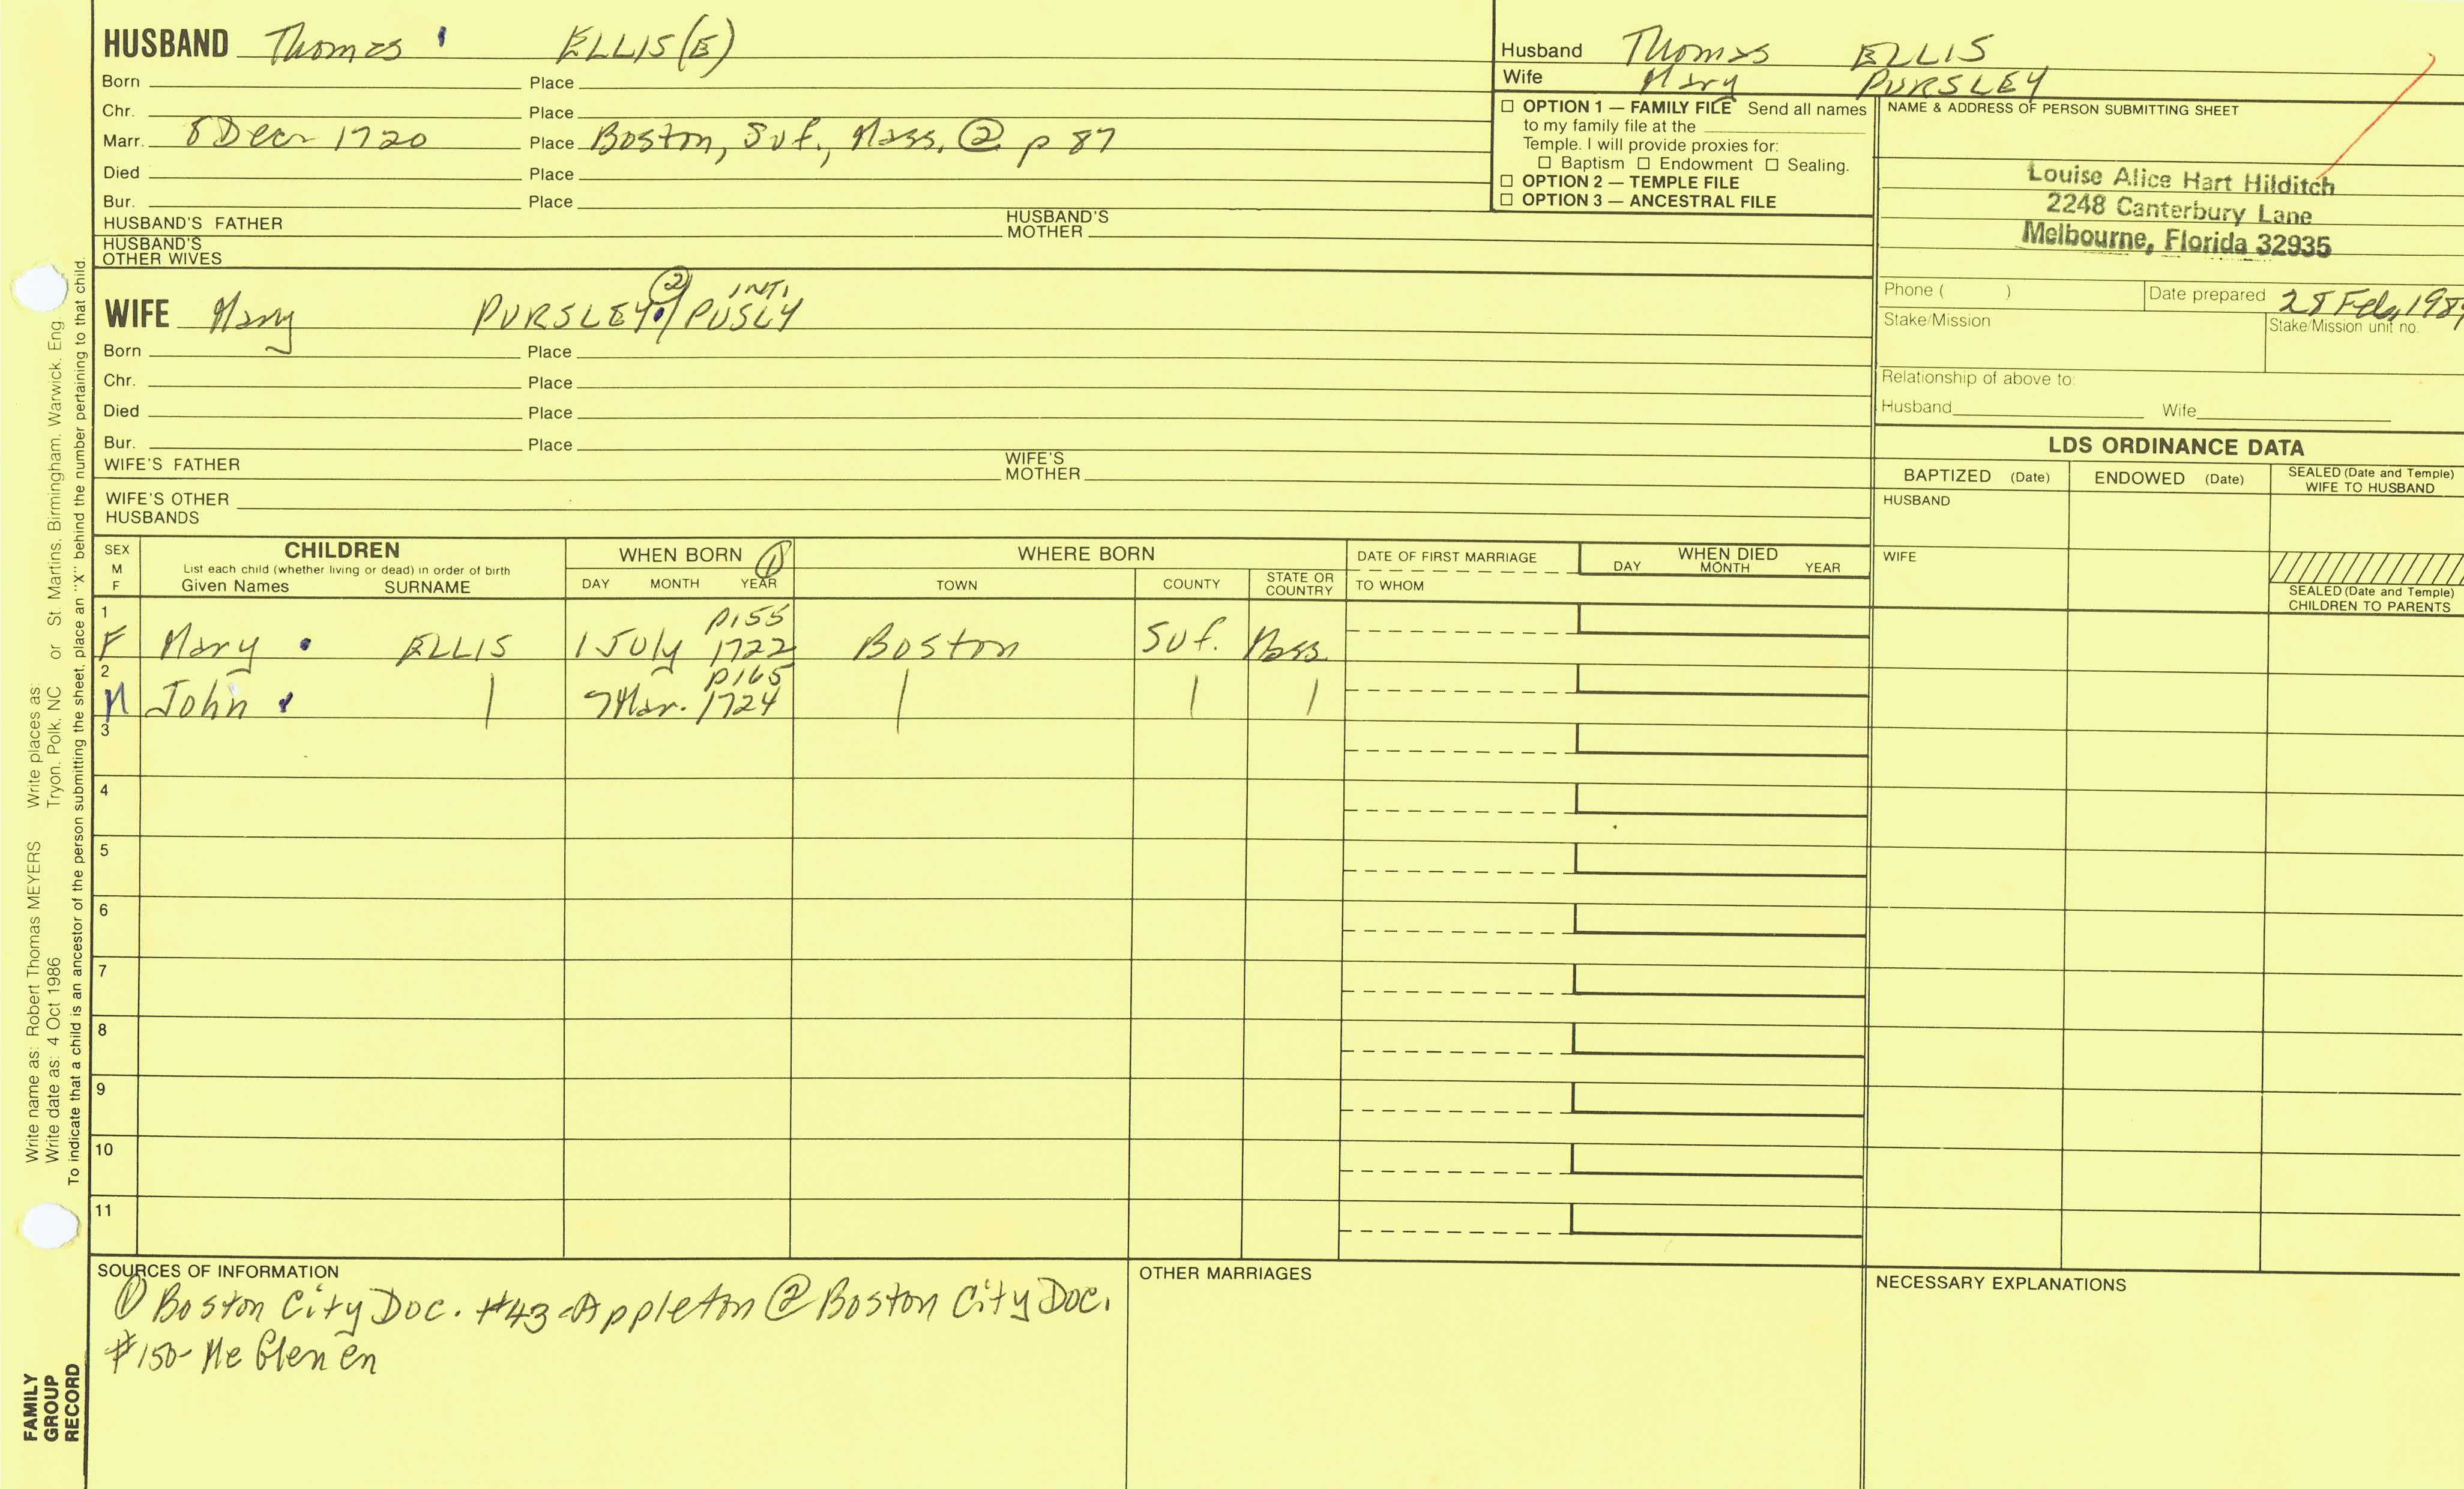 HUSBAND Thomas ELLIS(E)
Born Place
Chr. Place
Marr. 8 Dec 1720 Place Boston, Suf., Mass. ② p 87
Died Place
Bur. Place
HUSBAND'S FATHER HUSBAND'S MOTHER
HUSBAND'S OTHER WIVES
Husband Thomas ELLIS
Wife Mary PURSLEY
☐ OPTION 1 — FAMILY FILE Send all names
to my family file at the
Temple. I will provide proxies for:
☐ Baptism ☐ Endowment ☐ Sealing.
☐ OPTION 2 — TEMPLE FILE
☐ OPTION 3 — ANCESTRAL FILE
NAME & ADDRESS OF PERSON SUBMITTING SHEET
Louise Alice Hart Hilditch
2248 Canterbury Lane
Melbourne, Florida 32935
Phone ( ) Date prepared 28 Feb, 198
Stake/Mission Stake/Mission unit no.
Relationship of above to:
Husband Wife
WIFE Mary PURSLEY ② / PUSLY INT.
Born Place
Chr. Place
Died Place
Bur. Place
WIFE'S FATHER WIFE'S MOTHER
WIFE'S OTHER HUSBANDS
LDS ORDINANCE DATA
BAPTIZED (Date) ENDOWED (Date) SEALED (Date and Temple) WIFE TO HUSBAND
HUSBAND
WIFE
SEALED (Date and Temple) CHILDREN TO PARENTS
SEX M F
CHILDREN
List each child (whether living or dead) in order of birth
Given Names SURNAME
WHEN BORN ①
DAY MONTH YEAR
WHERE BORN
TOWN COUNTY STATE OR COUNTRY
DATE OF FIRST MARRIAGE
TO WHOM
WHEN DIED
DAY MONTH YEAR
1 p155
F Mary ELLIS 1 July 1722 Boston Suf. Mass.
2 p165
M John | 7 Mar. 1724 | | |
3
4
5
6
7
8
9
10
11
SOURCES OF INFORMATION
① Boston City Doc. #43-Appleton ② Boston City Doc.
#150-McGlenen
OTHER MARRIAGES
NECESSARY EXPLANATIONS
Write name as: Robert Thomas MEYERS Write places as:
Write date as: 4 Oct 1986 Tryon, Polk, NC or St. Martins, Birmingham, Warwick, Eng
To indicate that a child is an ancestor of the person submitting the sheet, place an "X" behind the number pertaining to that child.
FAMILY
GROUP
RECORD